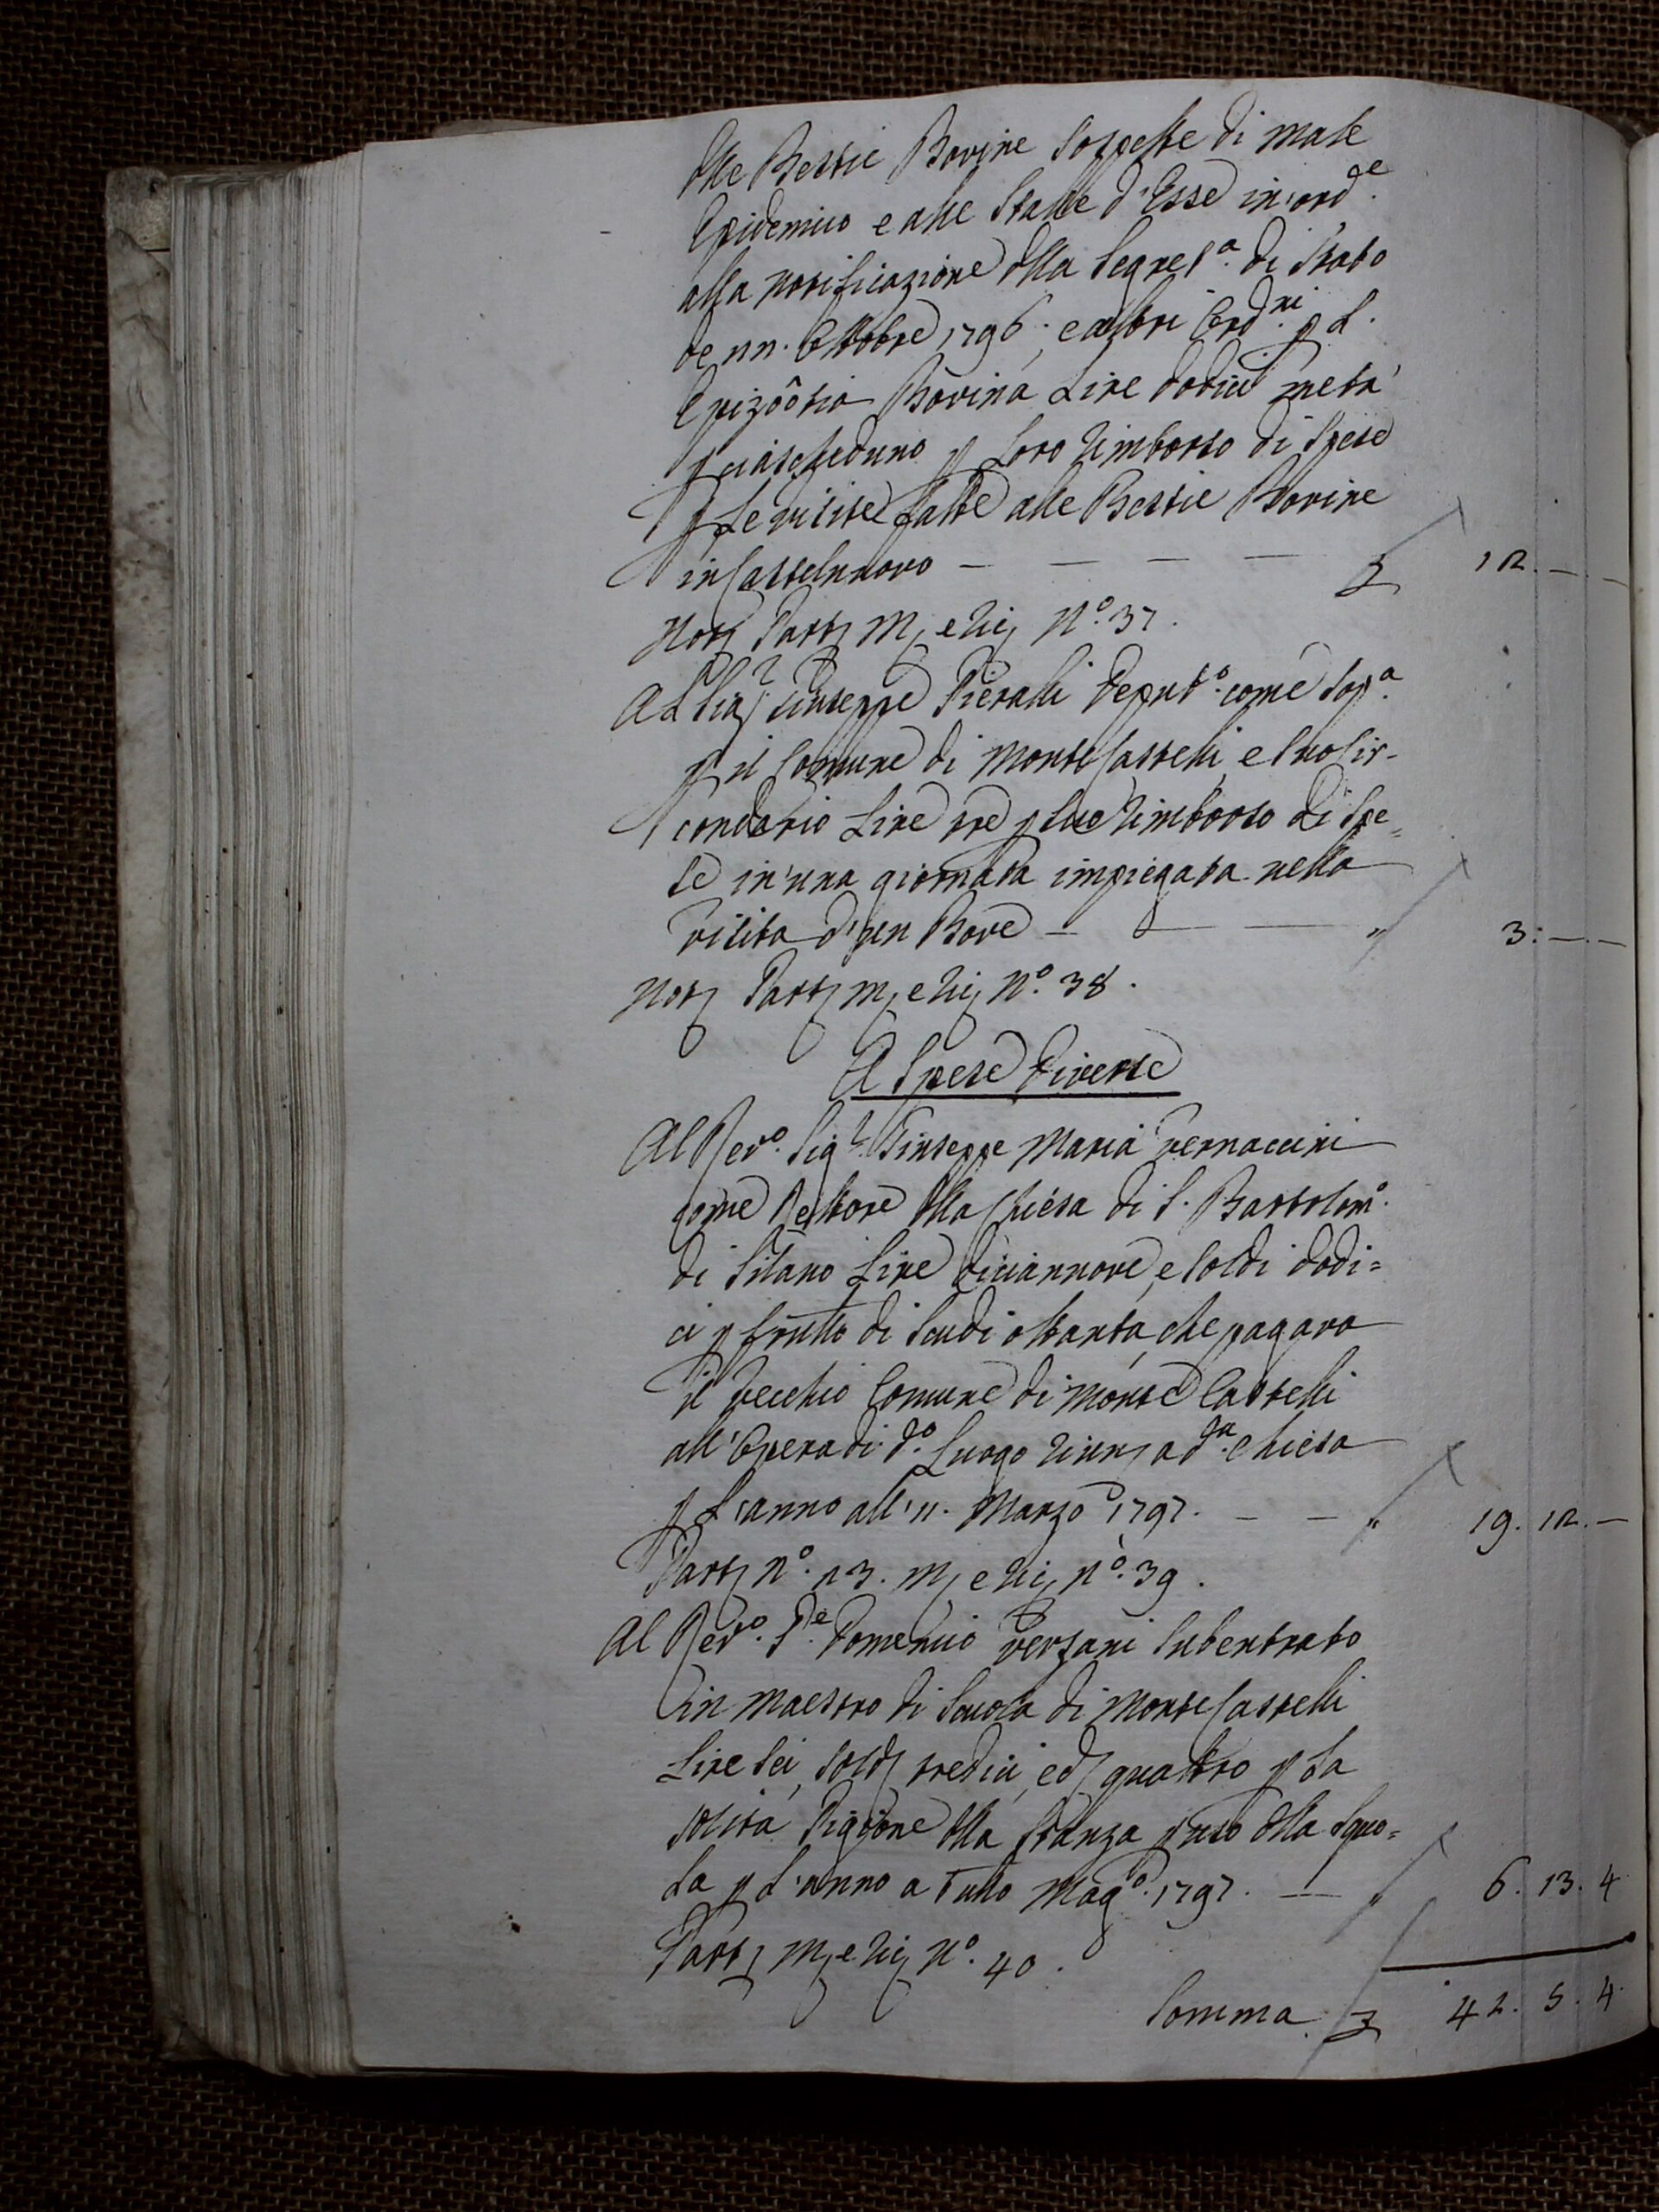 dlle Bestie Bovine Sospette di male
Epidemico e alle Stalle d'Esse in ord.e
alla notificazione dlla Segret.a di Stato
de 22. Ottobre 1796; e altri Ord.ni p L'
Epizootia Bovina Lire dodici metà
p ciascheduno p loro rimborso di Spese
p Le visite fatte alle Bestie Bovine
in Castelnuovo — — — — £ 12. —. —
Not Part M, e Ric, N.o 37.
Al Sig.r Giuseppe Pieralli Deput.o come Sop.a
p il Comune di Monte Castelli, e Suo Cir-
condario Lire tre p Suo rimborso di Spe=
se in una giornata impiegata nella
visita d'un Bove — — — " 3. —. —
Not Part M, e Ric, N.o 38.
A Spese Diverse
Al Rev.o Sig.r Giuseppe Maria Vernaccini
come Rettore dlla Chiesa di S. Bartolom.o
di Silano Lire diciannove, e soldi dodi=
ci p frutto di Scudi ottanta, che pagava
il Vecchio Comune di Monte Castelli
all'Opera di d.o Luogo riun a d.a Chiesa
p L'anno all'11. Marzo 1797. — — " 19. 12. —
Part N.o 23. M, e Ric, N.o 39.
Al Rev.o P.e Domenico Verzani Subentrato
in Maestro di Scuola di Monte Castelli
Lire Sei, Sold tredici, e d quattro p La
solita Pigione dlla Stanza p uso dlla Squo=
la p L'anno a tutto Mag.o 1797. — " 6. 13. 4
Part M, e Ric, N.o 40.
Somma £ 42. 5. 4